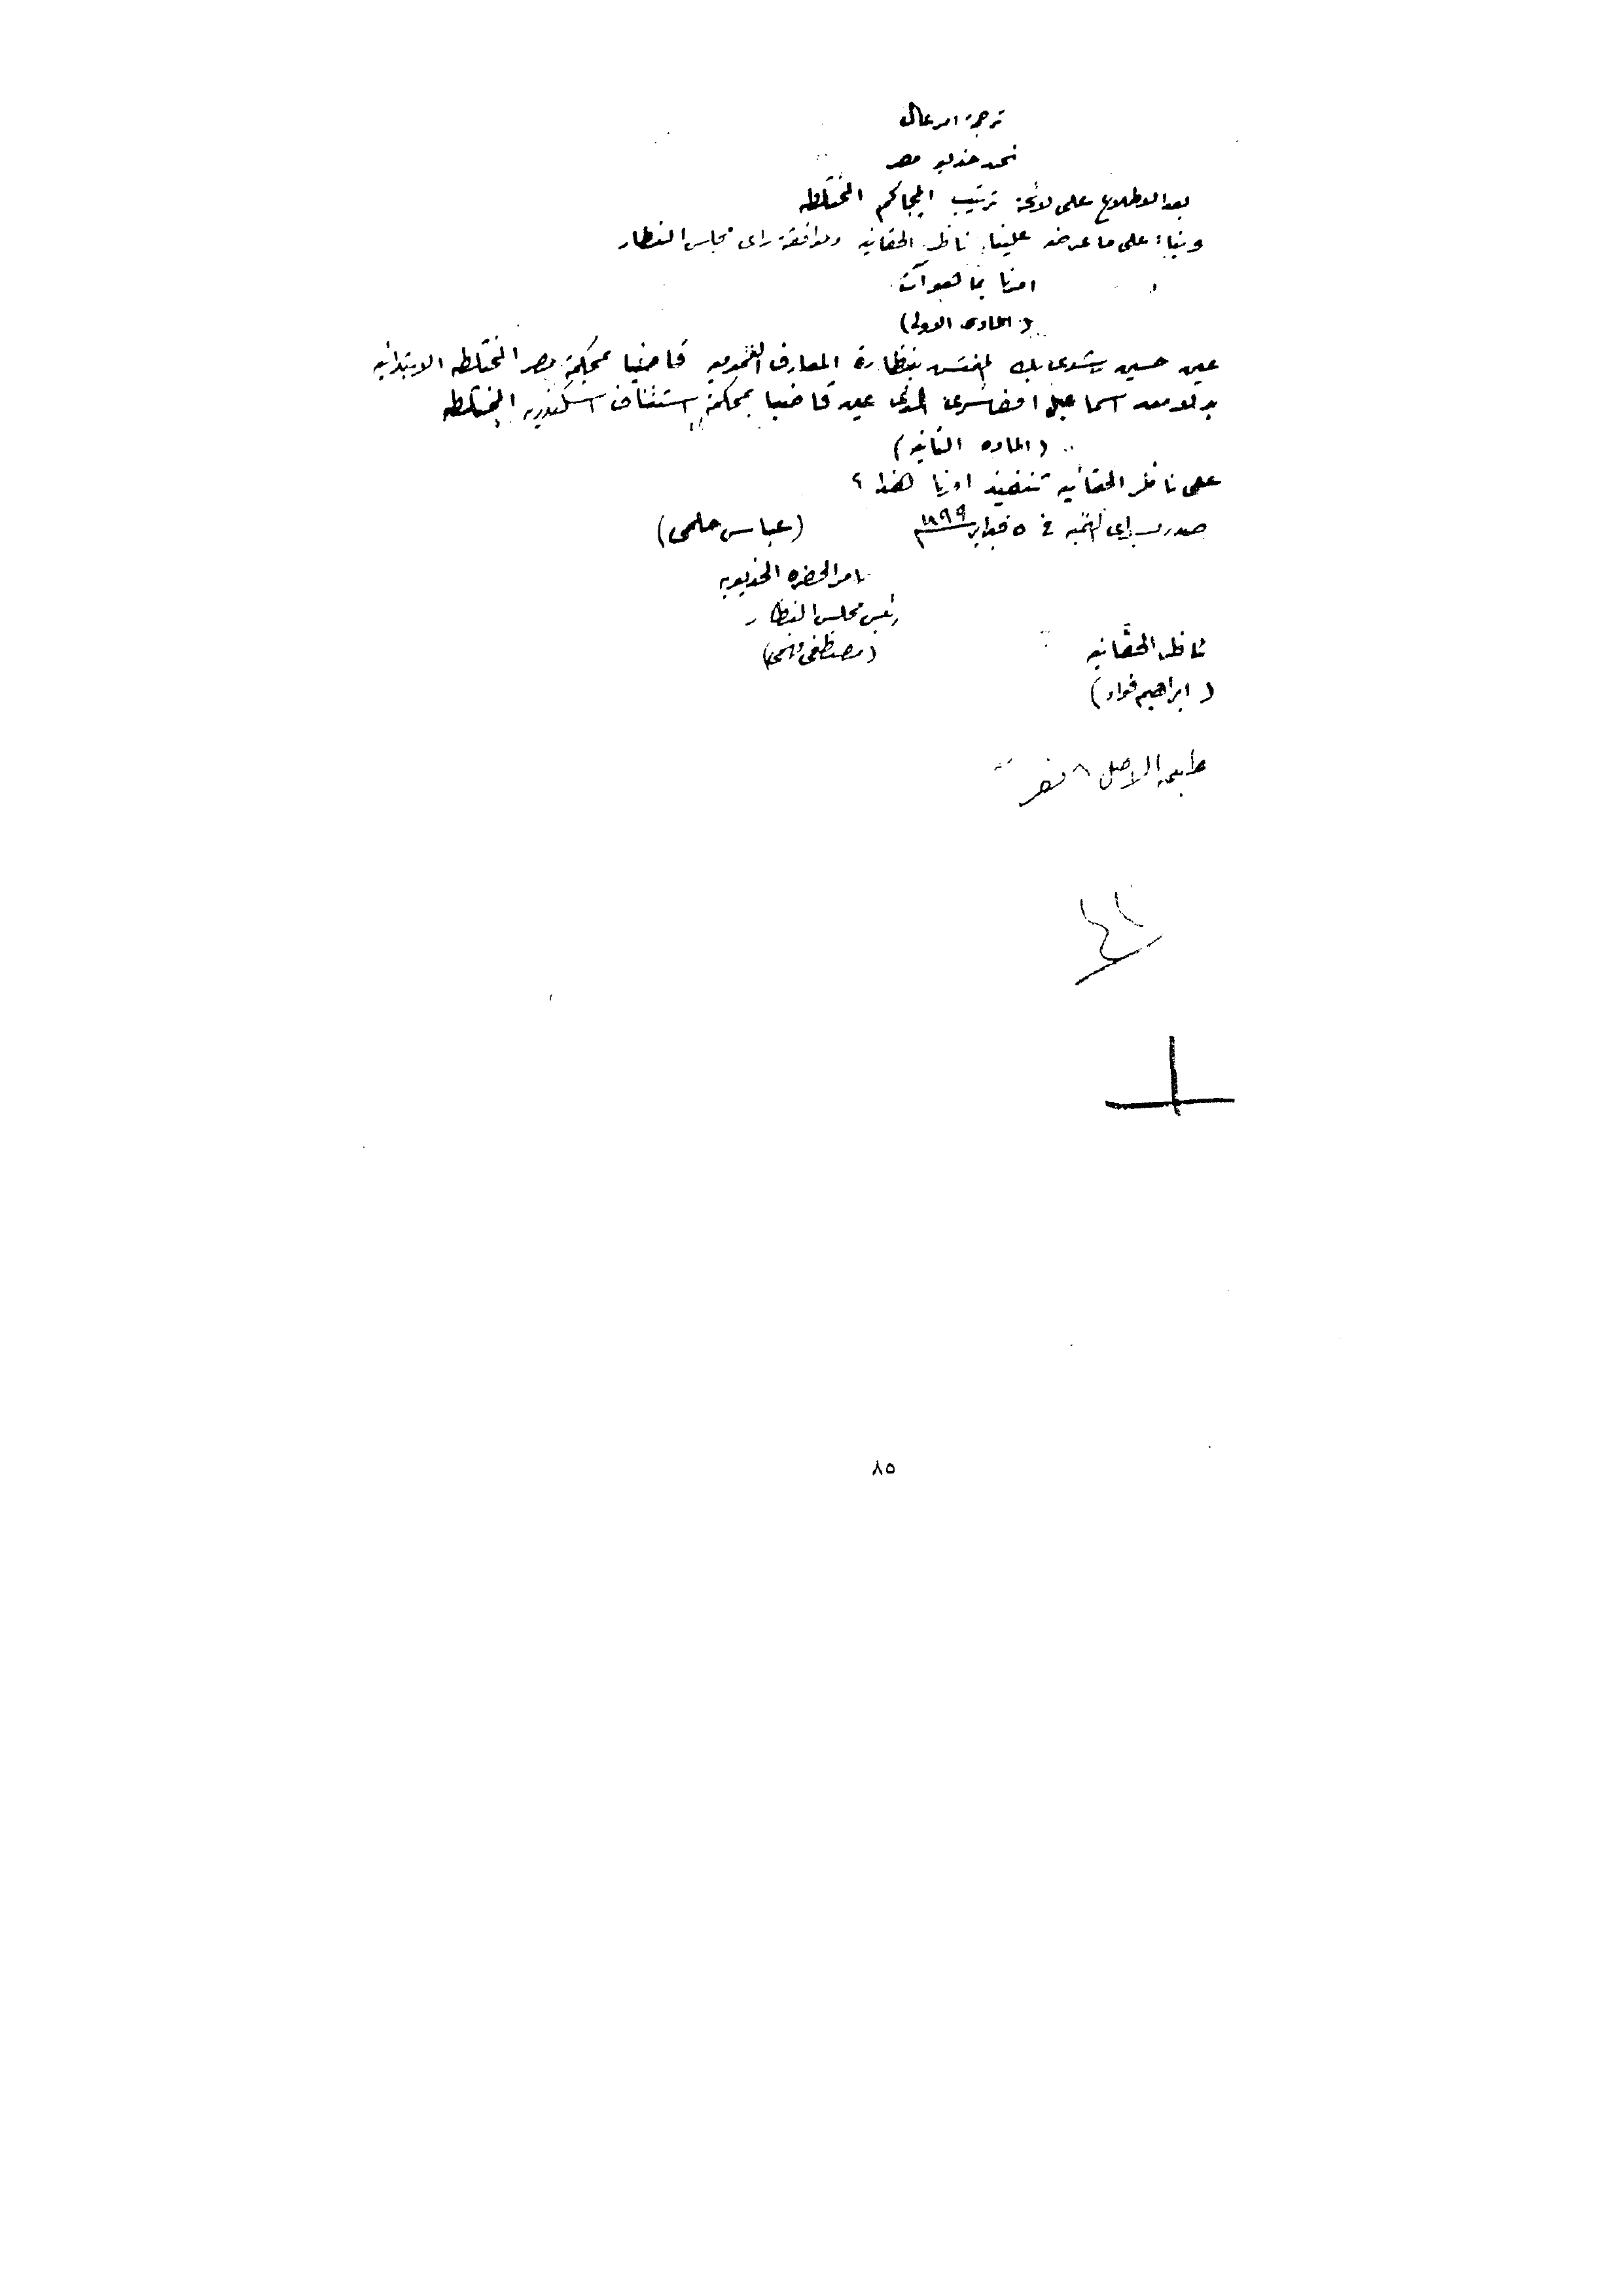 ترجمة امر عال
نحن خديو مصر
بعد الاطلاع على لائحة ترتيب المحاكم المختلطه
وبناء على ما عرضه علينا ناظر الحقانيه وموافقة راى مجلس النظار
امرنا بما هو آت
(الماده الاولى)
عين حسين رشدى بك المفتش بنظارة المعارف العموميه قاضيا بمحكمة مصر المختلطه الابتدائيه
بدلا من اسماعيل افندى سرى الذى عين قاضيا بمحكمة استئناف اسكندريه المختلطه
(الماده الثانيه)
على ناظر الحقانيه تنفيذ امرنا هذا
صدر بسراى القبه فى ٥ فبراير ١٨٩٩ (عباس حلمى)
بامر الحضره الخديويه
رئيس مجلس النظار
ناظر الحقانيه (مصطفى فهمى)
(ابراهيم فؤاد)
طابعه الاصل
٨٥